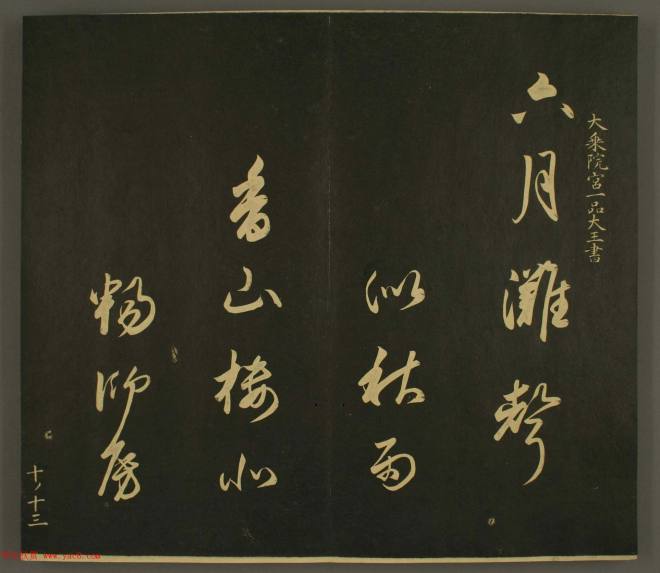 大乘院宮一品大王書
六月灘聲
似秋雨
香山樓北
暢師房
十ノ十三
www.yac8.com